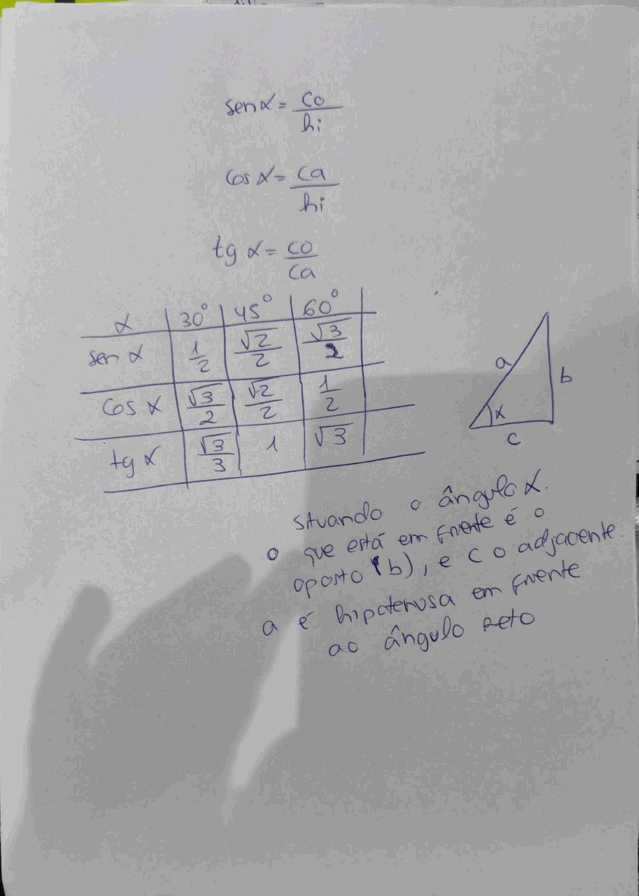 sen α = co/hi
cos α = ca/hi
tg α = co/ca
α 30° 45° 60°
sen α 1/2 √2/2 √3/2
cos α √3/2 √2/2 1/2
tg α √3/3 1 √3
a
b
α
c
situando o ângulo α.
o que está em frente é o
oposto (b), e c o adjacente.
a é hipotenusa em frente
ao ângulo reto